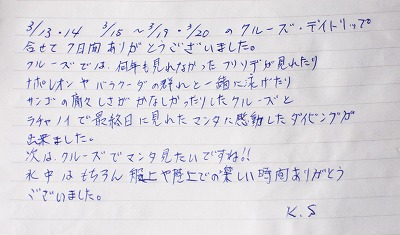 3/13・14 3/15～3/19・3/20 のクルーズ・デイトリップ
合せて7日間ありがとうございました。
クルーズでは、何年も見れなかったブリソデが見れたり
ナポレオンやバラクーダの群れと一緒に泳げたり
サンゴの痛々しさがかなしかったりしたクルーズと
ラチャノイで最終日に見れたマンタに感動したダイビングが
出来ました。
次は、クルーズでマンタ見たいですね!!
水中はもちろん船上や陸上での楽しい時間ありがとう
ございました。
K.S